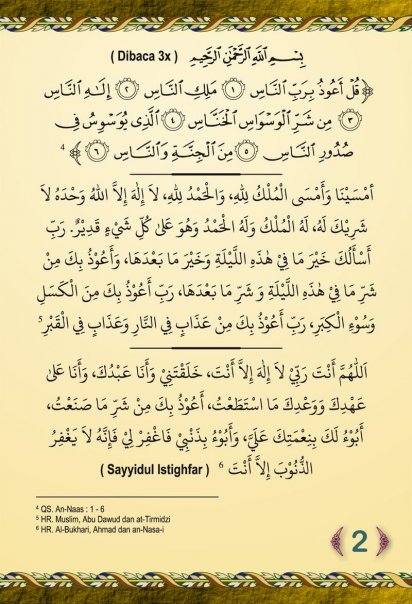 ( Dibaca 3x ) بِسْمِ اللَّهِ الرَّحْمَٰنِ الرَّحِيمِ
﴿ قُلْ أَعُوذُ بِرَبِّ النَّاسِ ١ مَلِكِ النَّاسِ ٢ إِلَٰهِ النَّاسِ
٣ مِن شَرِّ الْوَسْوَاسِ الْخَنَّاسِ ٤ الَّذِي يُوَسْوِسُ فِي
صُدُورِ النَّاسِ ٥ مِنَ الْجِنَّةِ وَالنَّاسِ ٦ ﴾ 4
أَمْسَيْنَا وَأَمْسَى الْمُلْكُ لِلهِ، وَالْحَمْدُ لِلهِ، لَا إِلٰهَ إِلاَّ اللهُ وَحْدَهُ لاَ
شَرِيْكَ لَهُ، لَهُ الْمُلْكُ وَلَهُ الْحَمْدُ وَهُوَ عَلىٰ كُلِّ شَيْءٍ قَدِيْرٌ. رَبِّ
أَسْأَلُكَ خَيْرَ مَا فِيْ هٰذِهِ اللَّيْلَةِ وَخَيْرَ مَا بَعْدَهَا، وَأَعُوْذُ بِكَ مِنْ
شَرِّ مَا فِيْ هٰذِهِ اللَّيْلَةِ وَ شَرِّ مَا بَعْدَهَا، رَبِّ أَعُوْذُ بِكَ مِنَ الْكَسَلِ
وَسُوْءِ الْكِبَرِ، رَبِّ أَعُوْذُ بِكَ مِنْ عَذَابٍ فِي النَّارِ وَعَذَابٍ فِي الْقَبْرِ 5
اَللَّهُمَّ أَنْتَ رَبِّيْ لاَ إِلٰهَ إِلاَّ أَنْتَ، خَلَقْتَنِيْ وَأَنَا عَبْدُكَ، وَأَنَا عَلىٰ
عَهْدِكَ وَوَعْدِكَ مَا اسْتَطَعْتُ، أَعُوْذُ بِكَ مِنْ شَرِّ مَا صَنَعْتُ،
أَبُوْءُ لَكَ بِنِعْمَتِكَ عَلَيَّ، وَأَبُوْءُ بِذَنْبِيْ فَاغْفِرْ لِيْ فَإِنَّهُ لاَ يَغْفِرُ
الذُّنُوْبَ إِلاَّ أَنْتَ 6 ( Sayyidul Istighfar )
4 QS. An-Naas : 1 - 6
5 HR. Muslim, Abu Dawud dan at-Tirmidzi
6 HR. Al-Bukhari, Ahmad dan an-Nasa-i
2